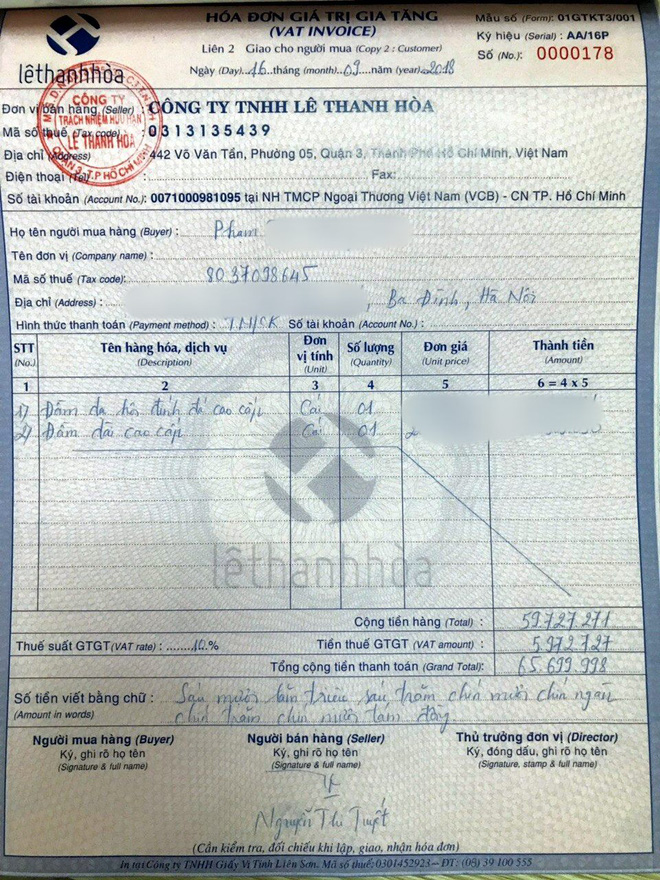 lêthanhhòa
HÓA ĐƠN GIÁ TRỊ GIA TĂNG
(VAT INVOICE)
Liên 2 Giao cho người mua (Copy 2 : Customer)
Ngày (Day) 16 tháng (month) 09 năm (year) 2018
Mẫu số (Form): 01GTKT3/001
Ký hiệu (Serial) : AA/16P
Số (No.): 0000178
CÔNG TY
TRÁCH NHIỆM HỮU HẠN
LÊ THANH HÒA
QUẬN 3 - T.P HỒ CHÍ MINH
Đơn vị bán hàng (Seller) : CÔNG TY TNHH LÊ THANH HÒA
Mã số thuế (Tax code) : 0313135439
Địa chỉ (Address) : 442 Võ Văn Tần, Phường 05, Quận 3, Thành Phố Hồ Chí Minh, Việt Nam
Điện thoại (Tel) : Fax:
Số tài khoản (Account No.): 0071000981095 tại NH TMCP Ngoại Thương Việt Nam (VCB) - CN TP. Hồ Chí Minh
Họ tên người mua hàng (Buyer) : Phạm
Tên đơn vị (Company name) :
Mã số thuế (Tax code): 8037098645
Địa chỉ (Address) : , Ba Đình, Hà Nội
Hình thức thanh toán (Payment method) : TM/CK Số tài khoản (Account No.) :
STT (No.) Tên hàng hóa, dịch vụ (Description) Đơn vị tính (Unit) Số lượng (Quantity) Đơn giá (Unit price) Thành tiền (Amount)
1 2 3 4 5 6 = 4 x 5
1) Đầm dạ hội đính đá cao cấp Cái 01
2) Đầm dài cao cấp Cái 01 2
lêthanhhòa
Cộng tiền hàng (Total) : 59.727.271
Thuế suất GTGT (VAT rate) : 10 % Tiền thuế GTGT (VAT amount) : 5.972.727
Tổng cộng tiền thanh toán (Grand Total): 65.699.998
Số tiền viết bằng chữ : Sáu mươi lăm triệu sáu trăm chín mươi chín ngàn
(Amount in words) chín trăm chín mươi tám đồng.
Người mua hàng (Buyer) Người bán hàng (Seller) Thủ trưởng đơn vị (Director)
Ký, ghi rõ họ tên Ký, ghi rõ họ tên Ký, đóng dấu, ghi rõ họ tên
(Signature & full name) (Signature & full name) (Signature, stamp & full name)
Nguyễn Thị Tuyết
(Cần kiểm tra, đối chiếu khi lập, giao, nhận hóa đơn)
In tại Công ty TNHH Giấy Vi Tính Liên Sơn. Mã số thuế: 0301452923 – ĐT: (08) 39 100 555